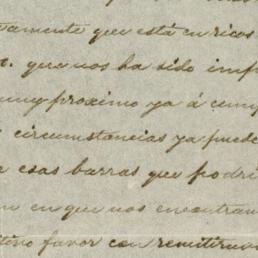 vamente que está en ricos
que nos ha sido imp
muy proximo ya á cump
circunstancias ya puede
esas barras que podri
en que nos encontram
favor con remitirnos